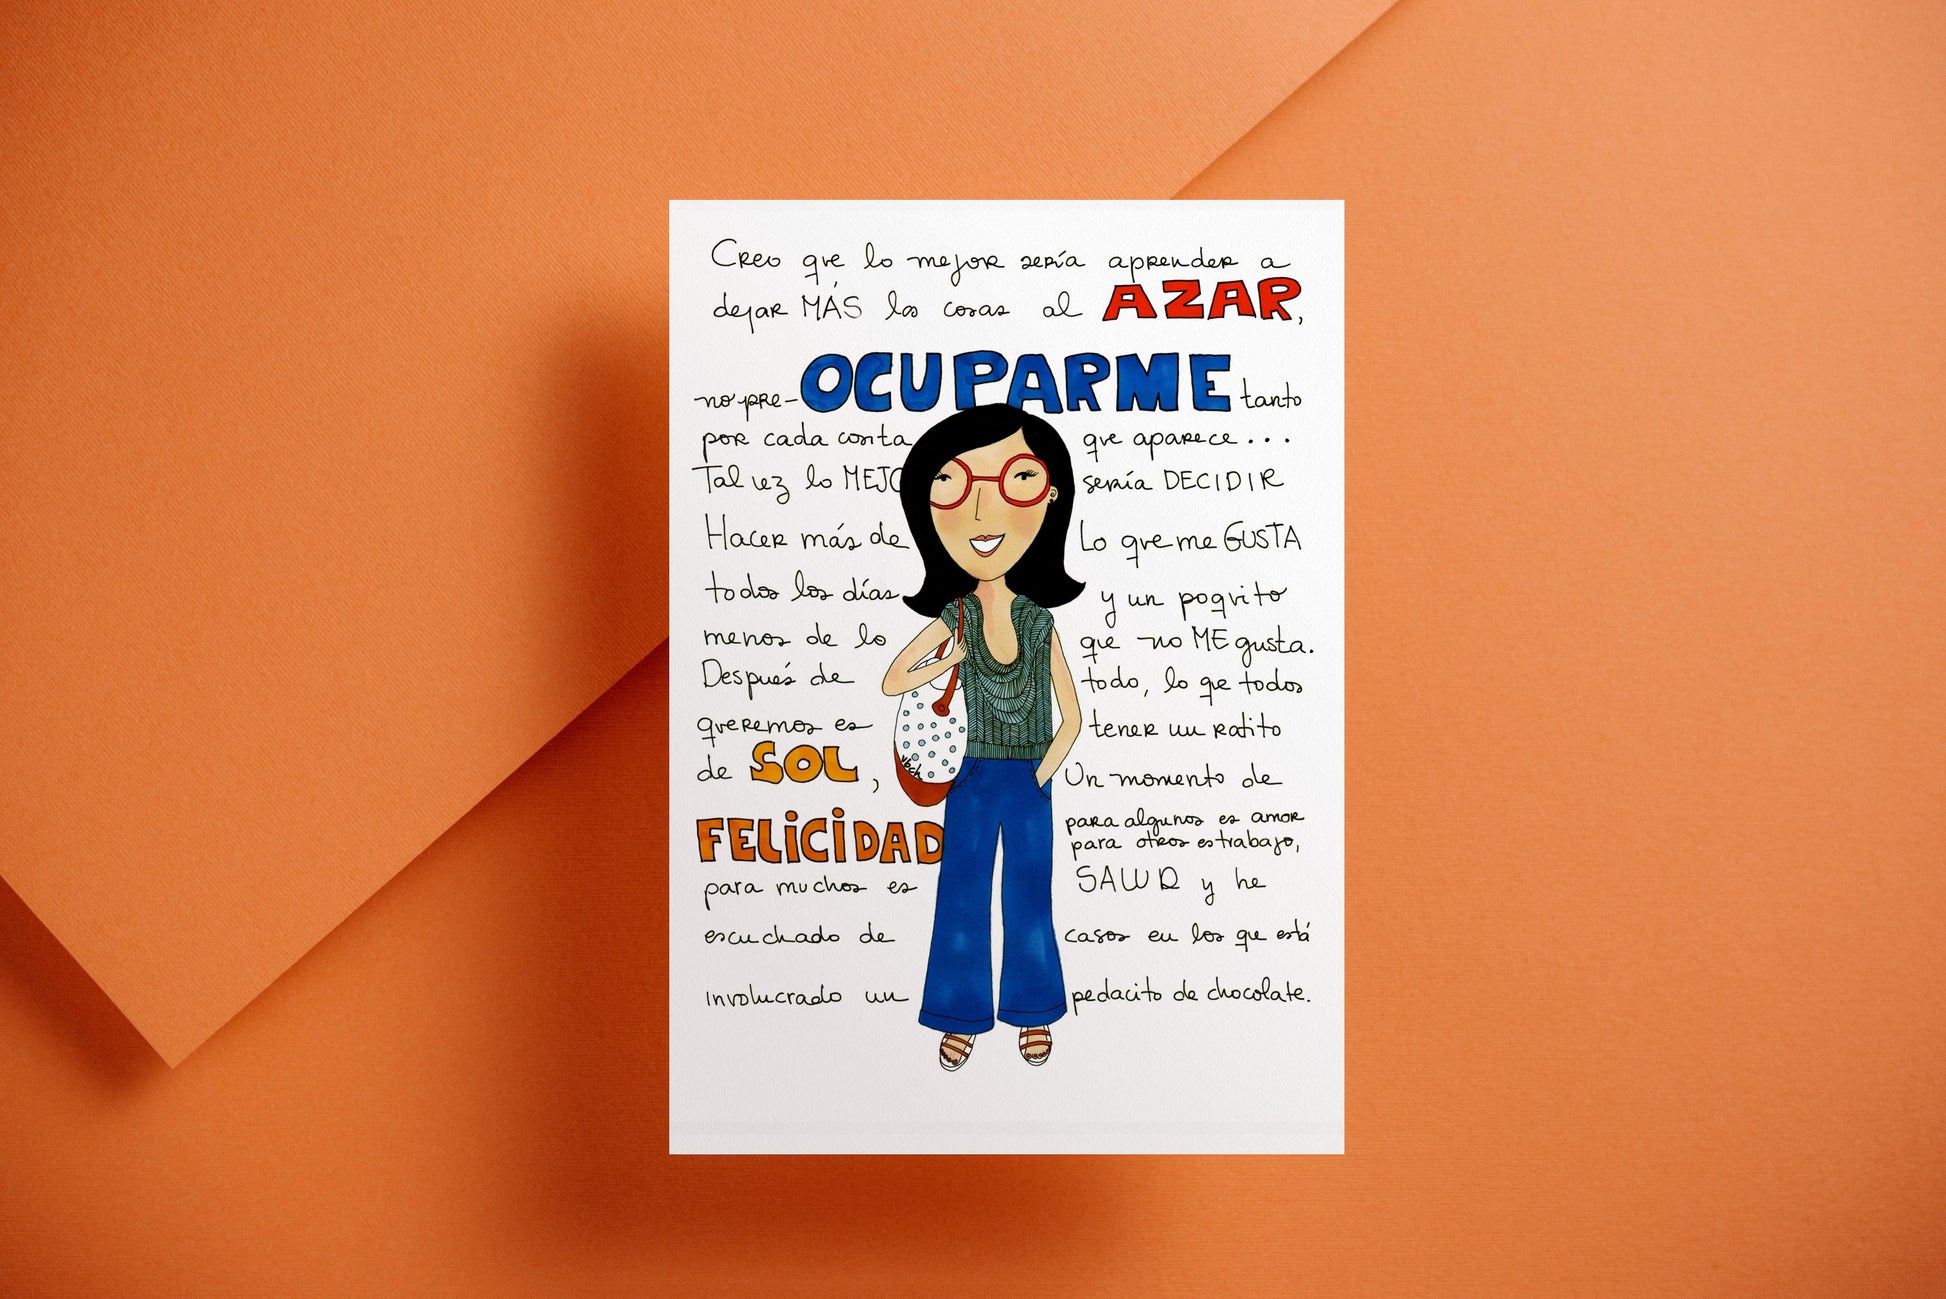 Creo que lo mejor sería aprender a
dejar MÁS las cosas al AZAR,
no pre-OCUPARME tanto
por cada cosita que aparece...
Tal vez lo MEJO sería DECIDIR
Hacer más de Lo que me GUSTA
todos los días y un poquito
menos de lo que no ME gusta.
Después de todo, lo que todos
queremos es tener un ratito
de SOL, Un momento de
FELICIDAD para algunos es amor
para otros es trabajo,
para muchos es SALUD y he
escuchado de casos en los que está
involucrado un pedacito de chocolate.
vbch